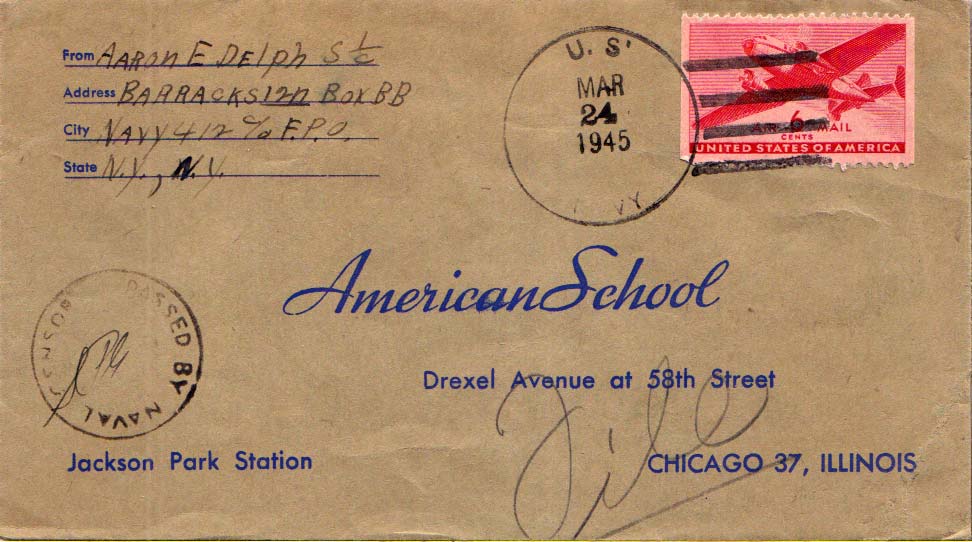 From AARON E DELPH S1/c
Address BARRACKS 12A BOX BB
City NAVY 412 c/o F.P.O.
State N.Y., N.Y.
U. S.
MAR
24
1945
AIR 6 MAIL
CENTS
UNITED STATES OF AMERICA
American School
PASSED BY NAVAL CENSOR
Drexel Avenue at 58th Street
Jackson Park Station
CHICAGO 37, ILLINOIS